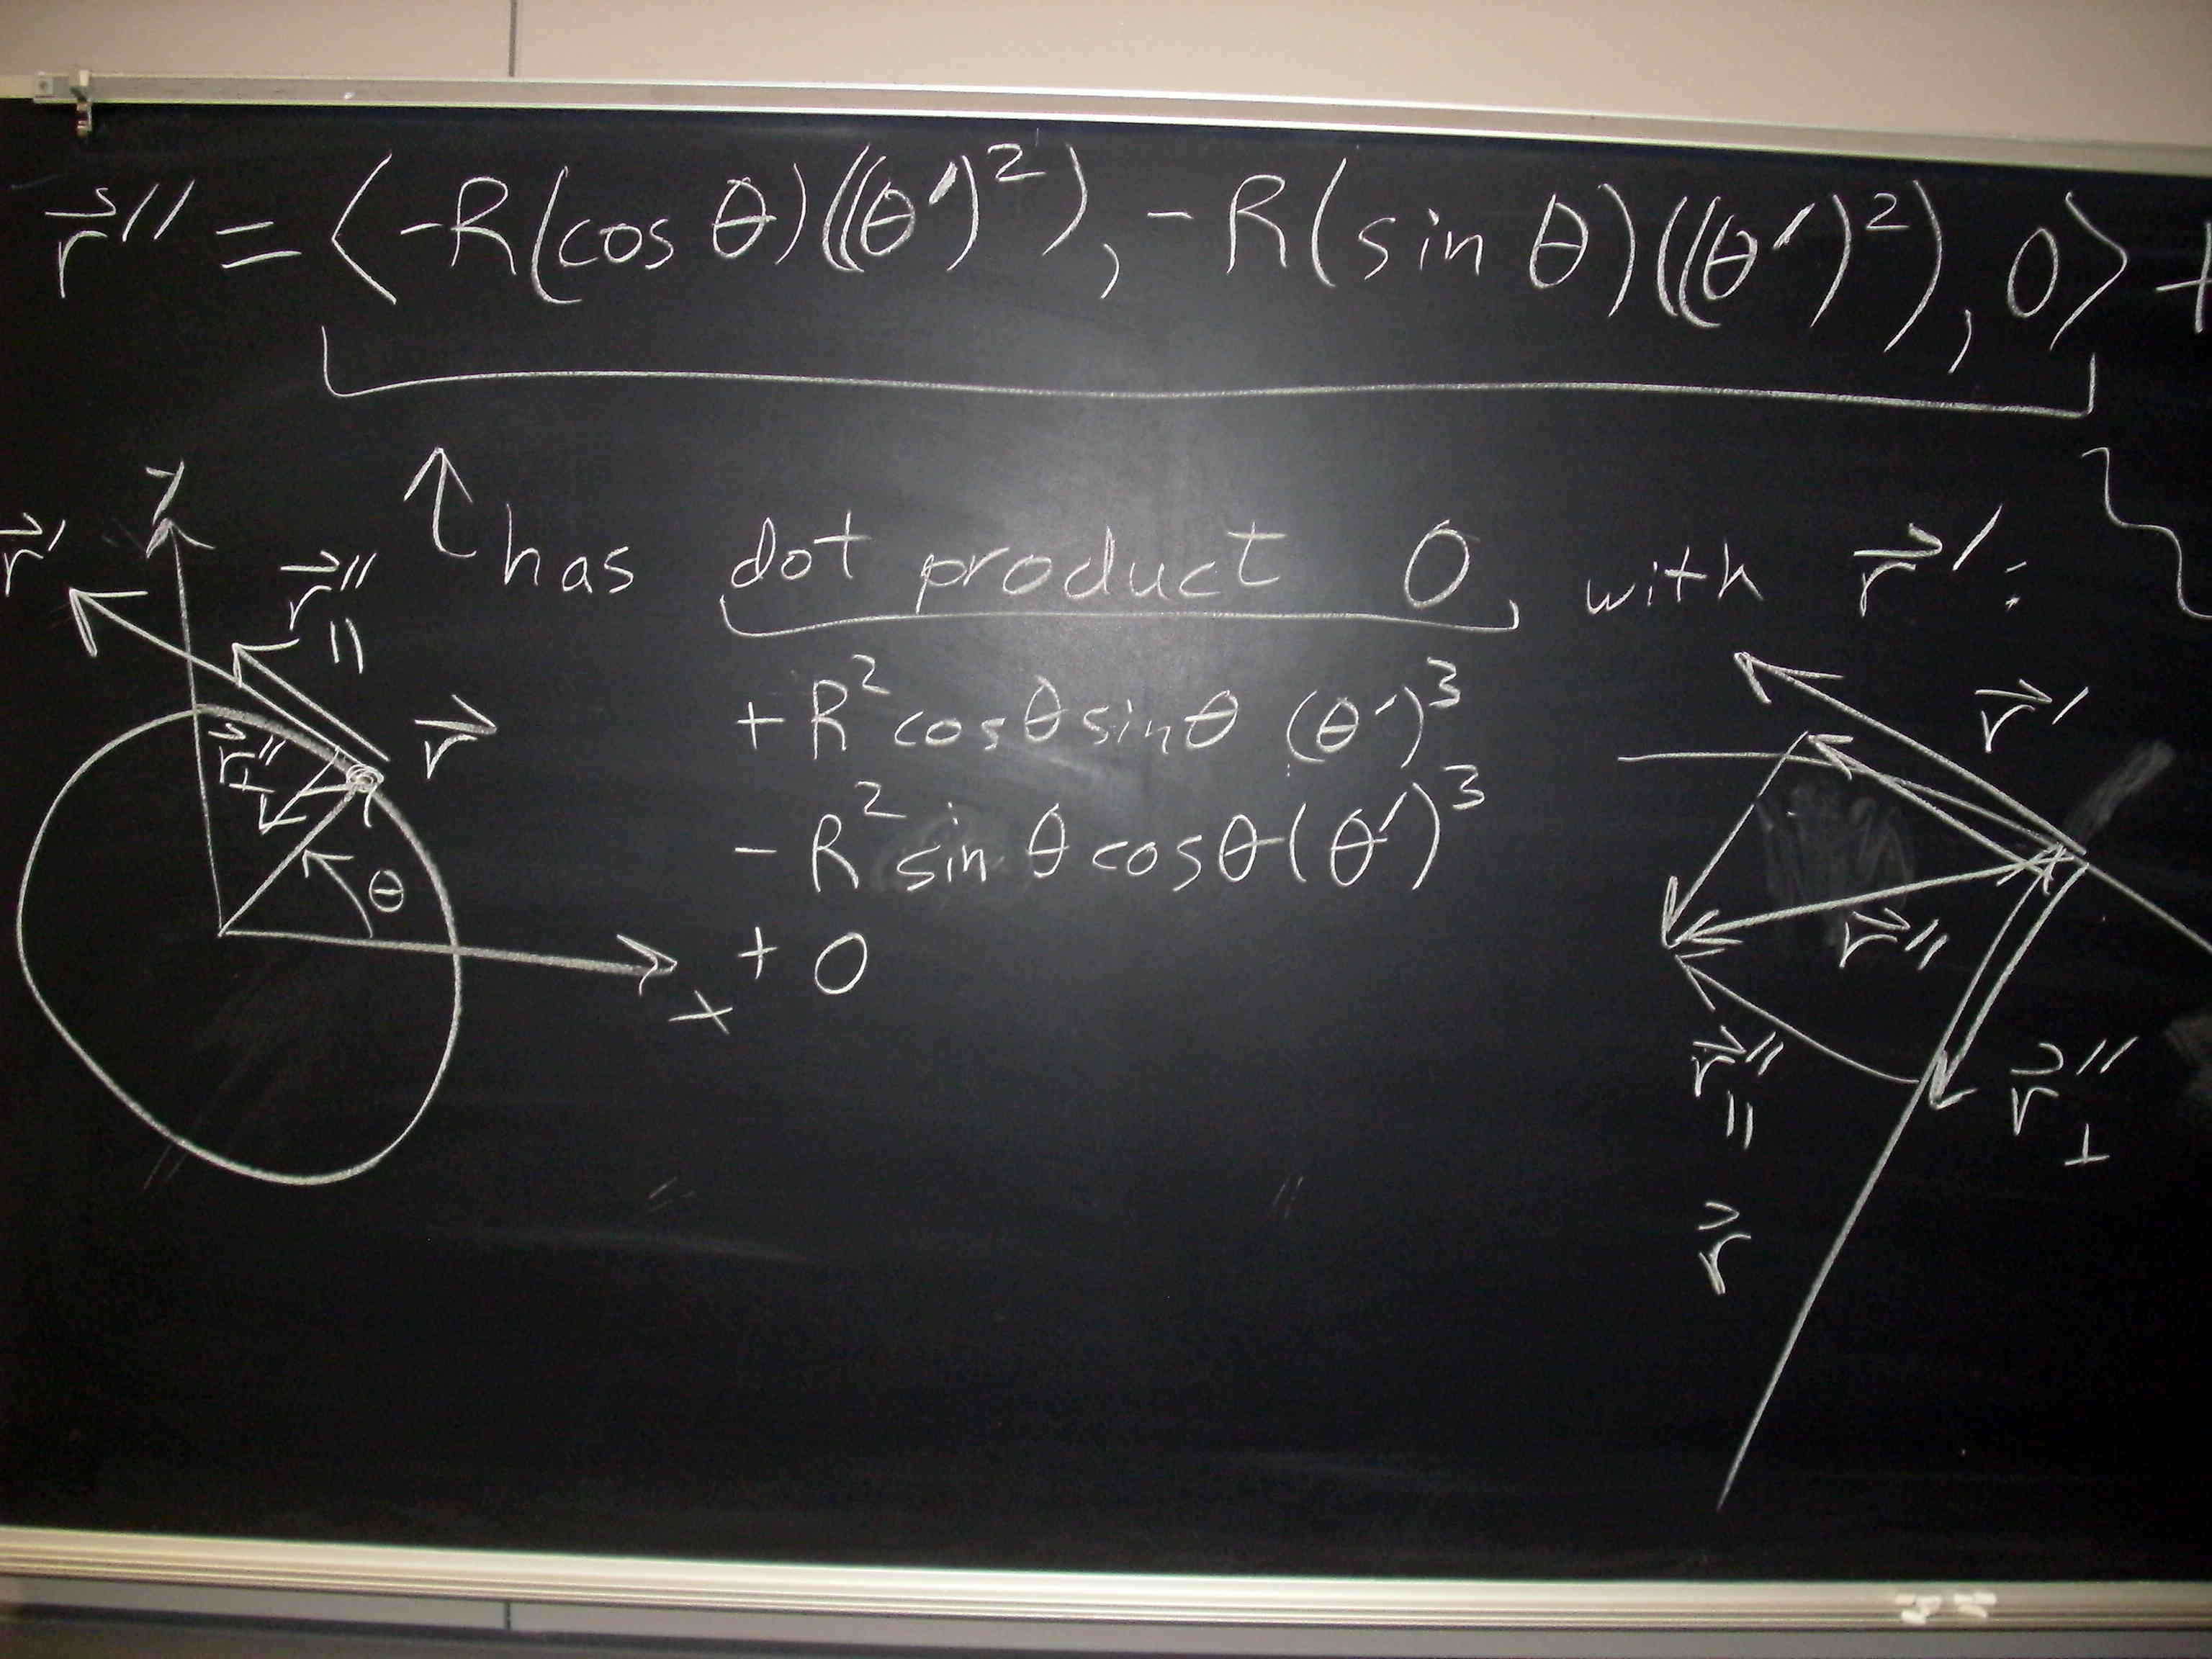 r⃗″ = ⟨-R(cos θ)((θ′)²), -R(sin θ)((θ′)²), 0⟩ +
↑ has dot product 0 with r⃗′:
+ R² cosθ sinθ (θ′)³
- R² sin θ cosθ (θ′)³
+ 0
y
r⃗′
r⃗″∥
r⃗
r⃗″⊥
θ
x
r⃗′
r⃗″
r⃗″∥
r⃗″⊥
r⃗